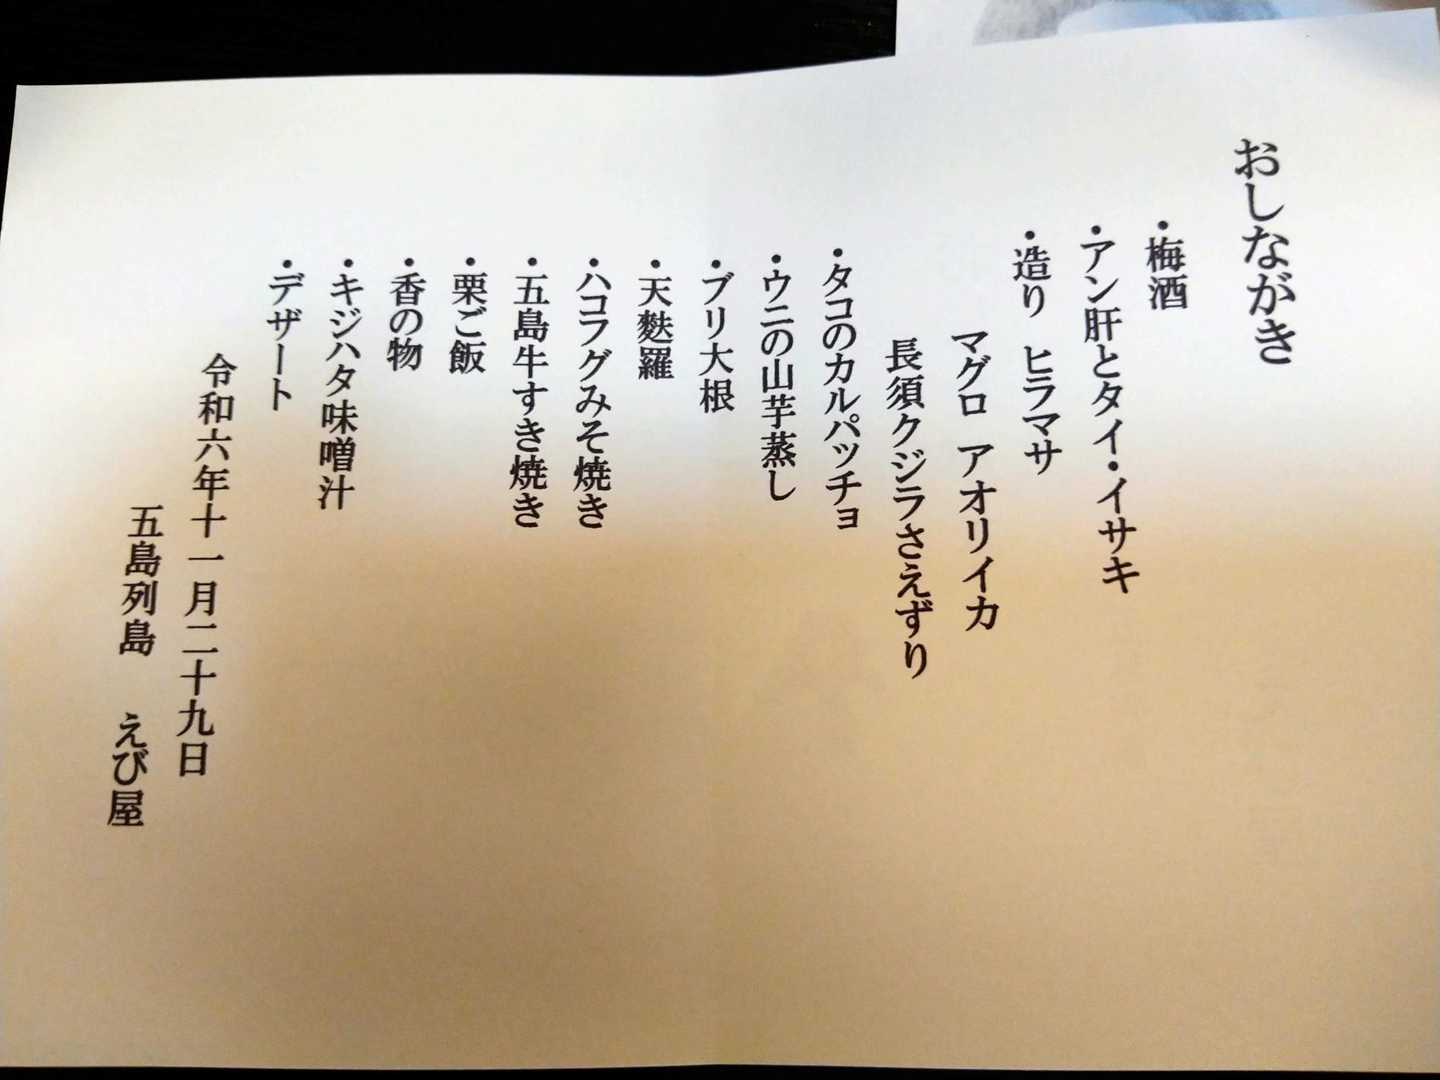 おしながき
・梅酒
・アン肝とタイ・イサキ
・造り ヒラマサ
マグロ アオリイカ
長須クジラさえずり
・タコのカルパッチョ
・ウニの山芋蒸し
・ブリ大根
・天麩羅
・ハコフグみそ焼き
・五島牛すき焼き
・栗ご飯
・香の物
・キジハタ味噌汁
・デザート
令和六年十一月二十九日
五島列島 えび屋